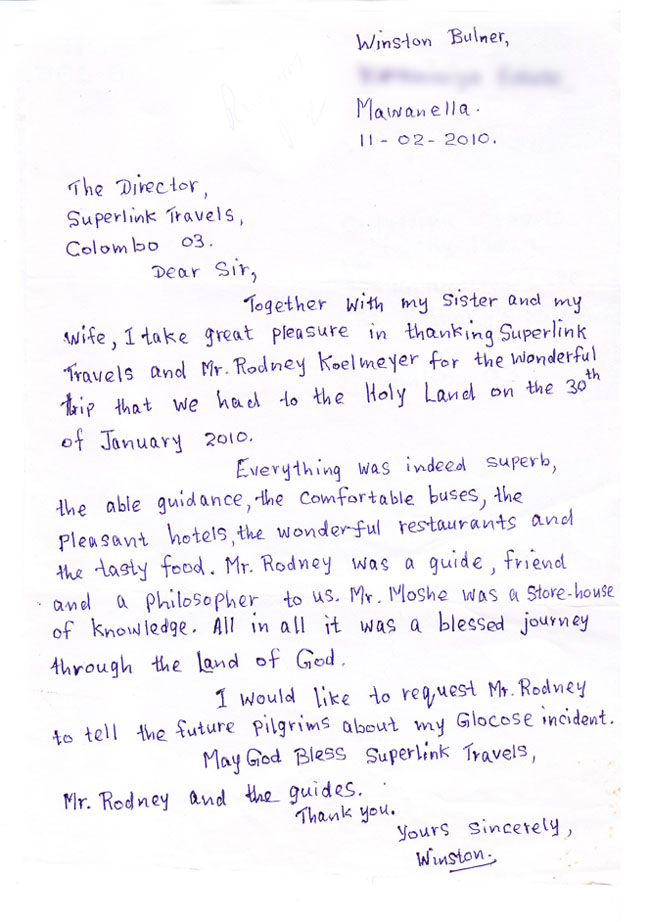 Winston Bulner,
Mawanella.
11-02-2010.
The Director,
Superlink Travels,
Colombo 03.
Dear Sir,
Together with my Sister and my
wife, I take great pleasure in thanking Superlink
Travels and Mr. Rodney Koelmeyer for the wonderful
trip that we had to the Holy Land on the 30th
of January 2010.
Everything was indeed superb,
the able guidance, the comfortable buses, the
pleasant hotels, the wonderful restaurants and
the tasty food. Mr. Rodney was a guide, friend
and a philosopher to us. Mr. Moshe was a store-house
of knowledge. All in all it was a blessed journey
through the Land of God.
I would like to request Mr. Rodney
to tell the future pilgrims about my Glocose incident.
May God Bless Superlink Travels,
Mr. Rodney and the guides.
Thank you.
Yours Sincerely,
Winston.